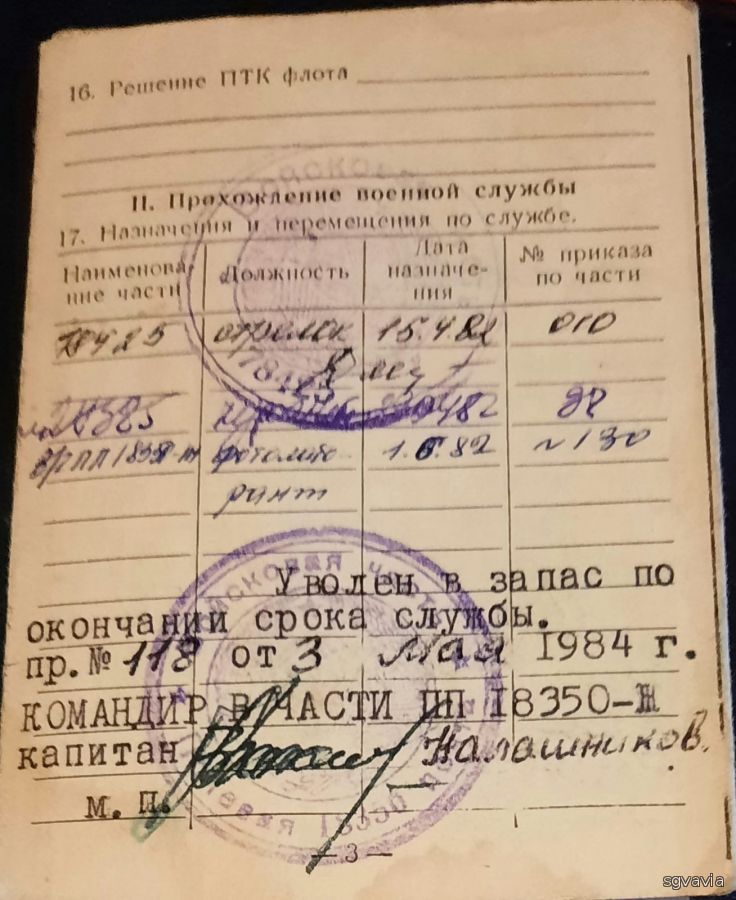 16. Решение ПТК флота
II. Прохождение военной службы
17. Назначения и перемещения по службе.
Наименова-
ние части
Должность
Дата
назначе-
ния
№ приказа
по части
стрелок 15.4.82 010
28
1.6.82 № 130
Уволен в запас по
окончании срока службы.
пр.№ 118 от 3 мая 1984 г.
КОМАНДИР В/ЧАСТИ ПП 18350-
капитан Калашников.
м.п.
— 3 —
sgvavia